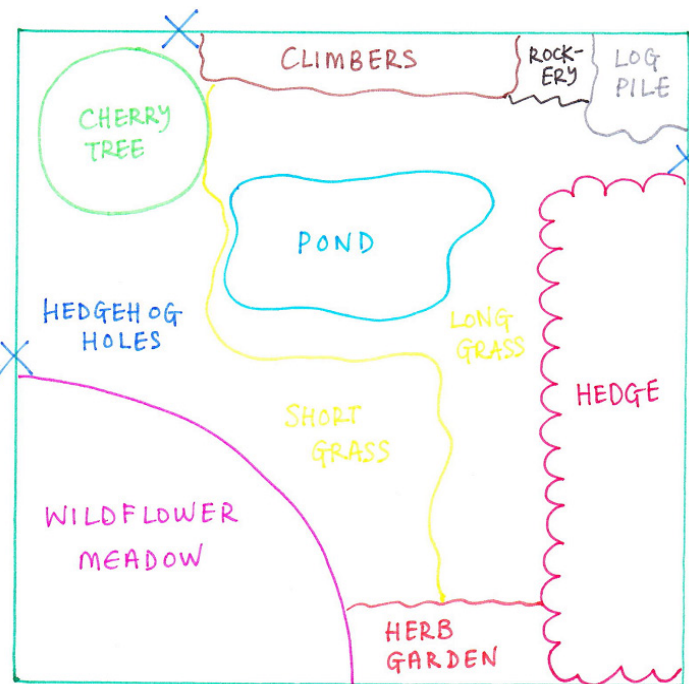 CLIMBERS
ROCK-
ERY
LOG
PILE
CHERRY
TREE
POND
HEDGEHOG
HOLES
LONG
GRASS
HEDGE
SHORT
GRASS
WILDFLOWER
MEADOW
HERB
GARDEN